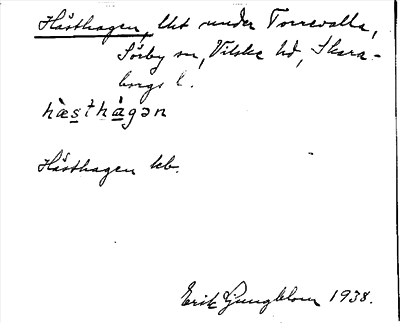 Hästhagen, lht under Torrevalla,
Sörby sn, Vilske hd, Skara-
borgs l.
hàesthàgən
Hästhagen kb.
Erik Ljungblom 1938.